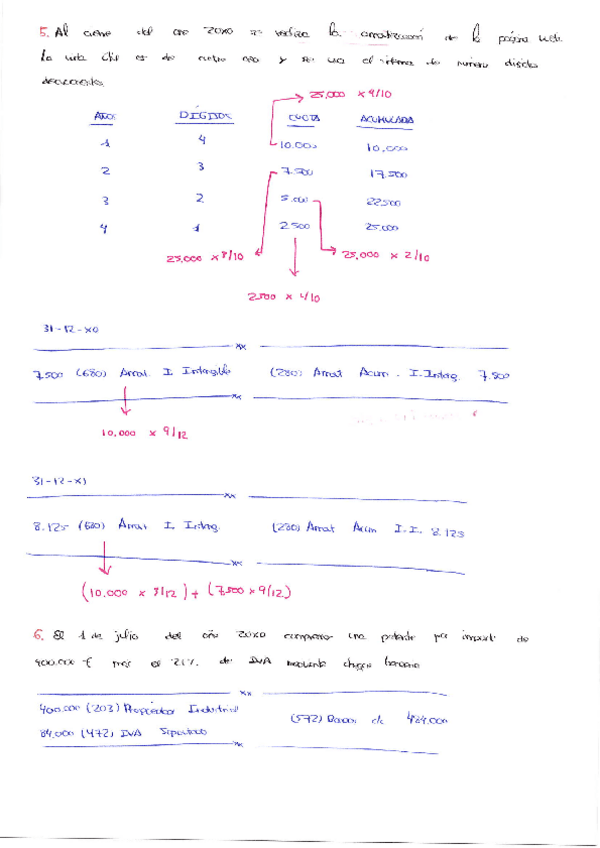 5. Al cierre del año 20X0 se realiza la amortización de la página web.
La vida útil es de cuatro años y se usa el sistema de números dígitos
decreciente.
25,000 x 4/10
AÑOS DÍGITOS CUOTA ACUMULADA
1 4 10.000 10,000
2 3 7.500 17.500
3 2 5.000 22500
4 1 2500 25.000
25,000 x 3/10 25,000 x 2/10
2500 x 1/10
31-12-X0
xx
7.500 (680) Amort. I. Intangible (280) Amort Acum. I. Intang. 7.500
xx
10,000 x 9/12
31-12-X1
xx
8.125 (680) Amort I. Intang. (280) Amort Acum I.I. 8.125
xx
(10.000 x 3/12) + (7,500 x 9/12)
6. El 1 de julio del año 20X0 compramos una patente por import de
400.000 € más el 21% de IVA mediante cheque bancario
xx
400.000 (203) Propiedad Industrial (572) Bancos c/c 484.000
84.000 (472) IVA Soportado
xx